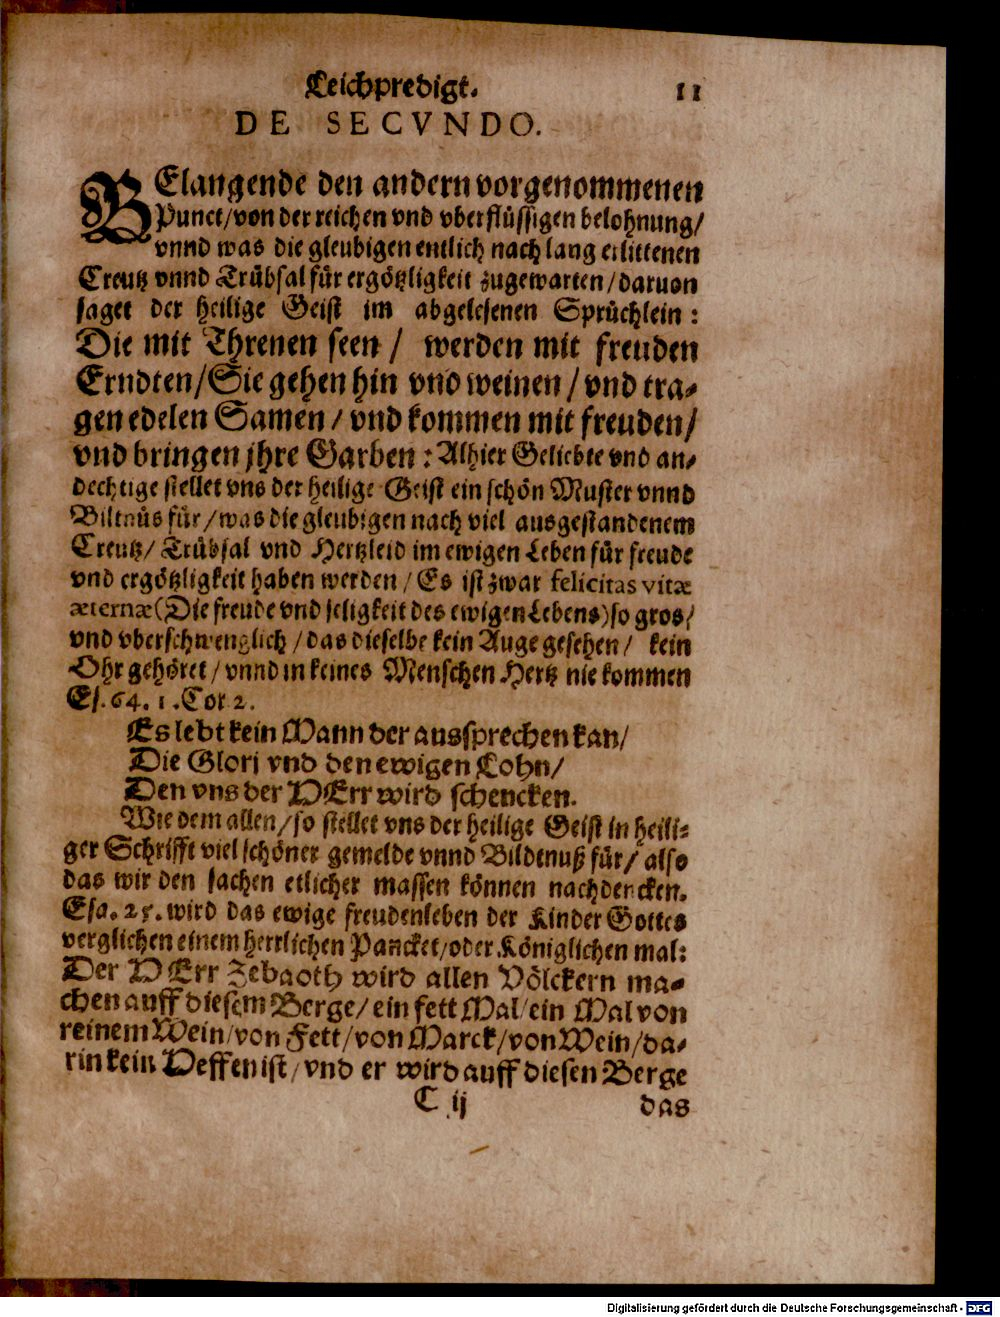 Leichpredigt. 11
DE SECVNDO.
BElangende den andern vorgenommenen
Punct/von der reichen vnd vberflüssigen belohnung/
vnnd was die gleubigen entlich nach lang erlittenen
Creutz vnnd Trübsal für ergötzligkeit zugewarten/daruon
saget der heilige Geist im abgelesenen Sprüchlein:
Die mit Threnen seen/ werden mit freuden
Erndten/Sie gehen hin vnd weinen/vnd tra-
gen edelen Samen/vnd kommen mit freuden/
vnd bringen jhre Garben: Alhier Geliebte vnd an-
dechtige stellet vns der heilige Geist ein schön Muster vnnd
Biltnüs für/was die gleubigen nach viel ausgestandenem
Creutz/Trübsal vnd Hertzleid im ewigen Leben für freude
vnd ergötzligkeit haben werden/Es ist zwar felicitas vitæ
æternæ(Die freude vnd seligkeit des ewigen Lebens)so gros/
vnd vberschwenglich/das dieselbe kein Auge gesehen/ kein
Ohr gehöret/vnnd in keines Menschen Hertz nie kommen
Es. 64. 1. Cor 2.
Es lebt kein Mann der aussprechen kan/
Die Glori vnd den ewigen Lohn/
Den vns der HErr wird schencken.
Wie dem allen/so stellet vns der heilige Geist in heili-
ger Schrifft viel schöner gemelde vnnd Bildtnuß für/also
das wir den sachen etlicher massen können nachdencken.
Esa. 25. wird das ewige freudenleben der Kinder Gottes
verglichen einem herrlichen Pancket/oder Königlichen mal:
Der HErr Zebaoth wird allen Völckern ma-
chen auff diesem Berge/ein fett Mal/ein Mal von
reinem Wein/von Fett/von Marck/von Wein/da-
rin kein Heffen ist/vnd er wird auff diesen Berge
C ij das
Digitalisierung gefördert durch die Deutsche Forschungsgemeinschaft - DFG